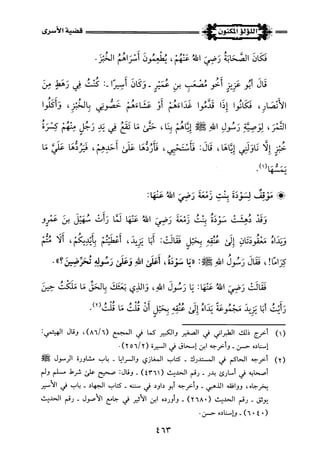 قضية الأسرى
اللؤلؤ المكنون
فَكَانَ الصَّحَابَةُ رَضِيَ اللهُ عَنْهُمْ، يُطْعِمُونَ أَسْرَاهُمُ الخُبْزَ.
قَالَ أَبُو عَزِيزٍ أَخُو مُصْعَبِ بنِ عُمَيْرٍ ـ وَكَانَ أَسِيرًا ـ: كُنْتُ فِي رَهْطٍ مِنَ
الأَنْصَارِ، فَكَانُوا إِذَا قَدَّمُوا غَدَاءَهُمْ أَوْ عَشَاءَهُمْ خَصُّونِي بِالخُبْزِ، وَأَكَلُوا
التَّمْرَ، لِوَصِيَّةِ رَسُولِ اللهِ ﷺ إِيَّاهُمْ بِنَا، حَتَّى مَا تَقَعُ فِي يَدِ رَجُلٍ مِنْهُمْ كِسْرَةُ
خُبْزٍ إِلَّا نَاوَلَنِي إِيَّاهَا، قَالَ: فَأَسْتَحْيِي، فَأَرُدُّهَا عَلَى أَحَدِهِمْ، فَيَرُدُّهَا عَلَيَّ مَا
يَمَسُّهَا(١).
مَوْقِفٌ لِسَوْدَةَ بِنْتِ زَمْعَةَ رَضِيَ اللهُ عَنْهَا:
وَقَدْ دُهِشَتْ سَوْدَةُ بِنْتُ زَمْعَةَ رَضِيَ اللهُ عَنْهَا لَمَّا رَأَتْ سُهَيْلَ بنَ عَمْرٍو
وَيَدَاهُ مَعْقُودَتَانِ إِلَى عُنُقِهِ بِحَبْلٍ فَقَالَتْ: أَبَا يَزِيدَ، أَعْطَيْتُمْ بِأَيْدِيكُمْ، أَلَا مُتُّمْ
كِرَامًا!، فَقَالَ رَسُولُ اللهِ ﷺ: «يَا سَوْدَةُ، أَعَلَى اللهِ وَعَلَى رَسُولِهِ تُحَرِّضِينَ؟».
فَقَالَتْ رَضِيَ اللهُ عَنْهَا: يَا رَسُولَ اللهِ، وَالَّذِي بَعَثَكَ بِالحَقِّ مَا مَلَكْتُ حِينَ
رَأَيْتُ أَبَا يَزِيدَ مَجْمُوعَةً يَدَاهُ إِلَى عُنُقِهِ بِحَبْلٍ أَنْ قُلْتُ مَا قُلْتُ(٢).
(١) أخرج ذلك الطبراني في الصغير والكبير كما في المجمع (٨٦/٦)، وقال الهيثمي:
إسناده حسن ـ وأخرجه ابن إسحاق في السيرة (٢٥٦/٢).
(٢) أخرجه الحاكم في المستدرك ـ كتاب المغازي والسرايا ـ باب مشاورة الرسول ﷺ
أصحابه في أسارى بدر ـ رقم الحديث (٤٣٦١) ـ وقال: صحيح على شرط مسلم ولم
يخرجاه، ووافقه الذهبي ـ وأخرجه أبو داود في سننه ـ كتاب الجهاد ـ باب في الأسير
يوثق ـ رقم الحديث (٢٦٨٠) ـ وأورده ابن الأثير في جامع الأصول ـ رقم الحديث
(٦٠٤٠) ـ وإسناده حسن.
٤٦٣